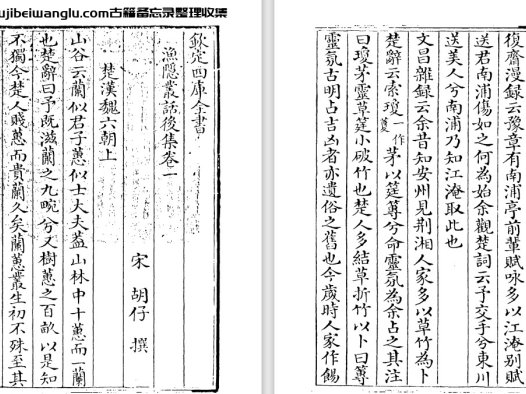 ujibeiwanglu.com古籍备忘录整理收集
欽定四庫全書
漁隱叢話後集卷一
宋 胡仔 撰
楚漢魏六朝上
山谷云蘭似君子蕙似士大夫葢山林中十蕙而一蘭
也楚辭曰予既滋蘭之九畹兮又樹蕙之百畝以是知
不獨今楚人賤蕙而貴蘭久矣蘭蕙叢生初不殊至其
復齋漫録云豫章有南浦亭前輩賦咏多以江淹别賦
送君南浦傷如之何為始余觀楚詞云予交手兮東川
送美人兮南浦乃知江淹取此也
文昌雜録云余昔知安州見荆湘人家多以草竹為卜
楚辭云索瓊一作藑茅以筳篿兮命靈氛為余占之其注
曰瓊茅靈草筳小破竹也楚人多結草折竹以卜曰篿
靈氛古明占吉凶者亦遺俗之舊也今歲時人家作餳